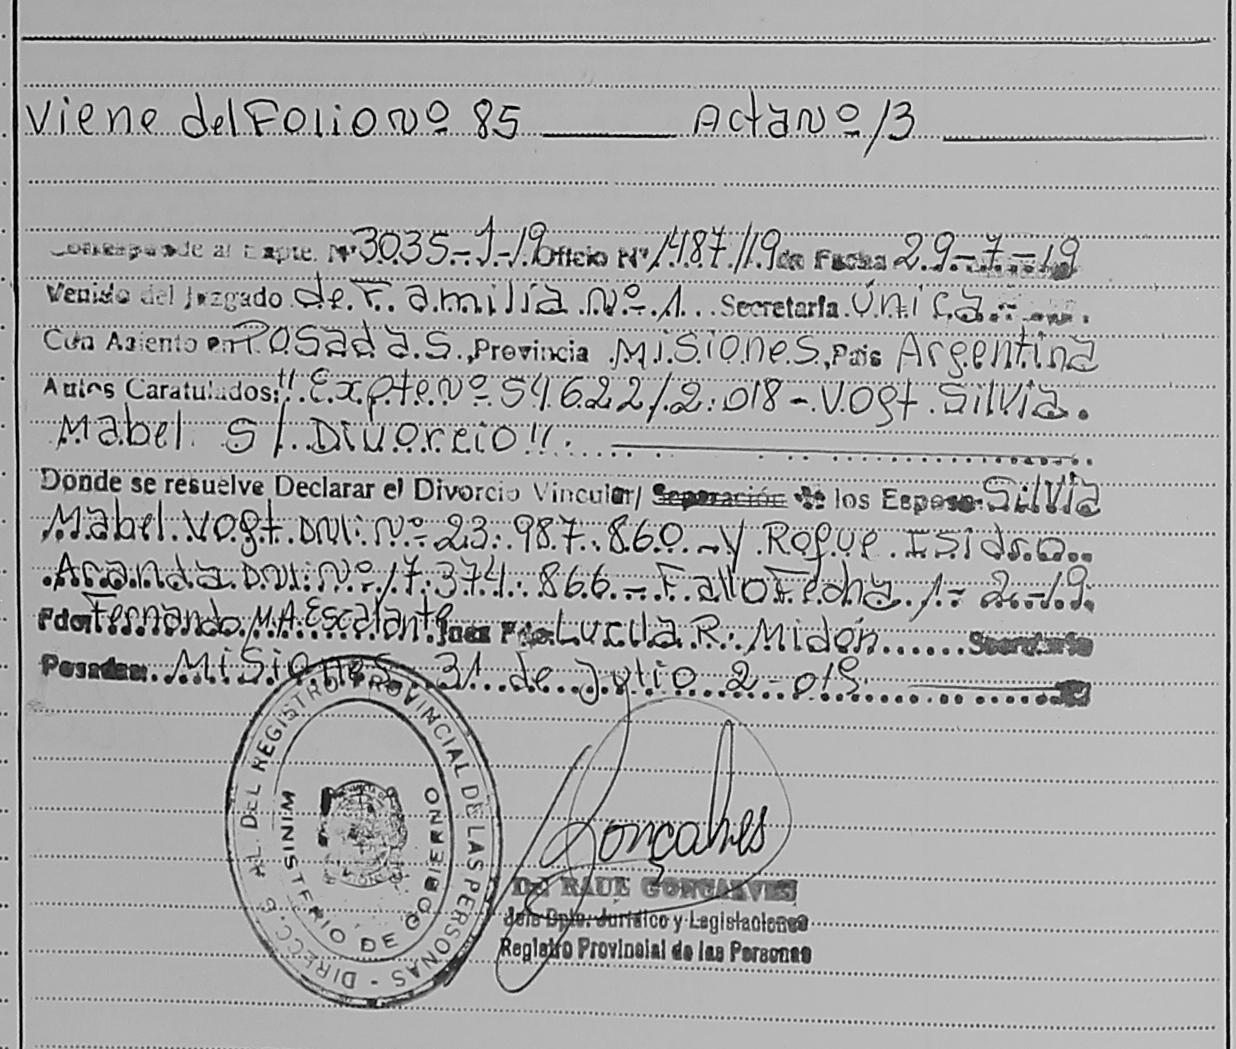 Viene del Folio Nº 85 ______ Acta Nº 13 ______
Corresponde al Expte. Nº 3035-J-19 Oficio Nº 1487/19 de Fecha 29-7-19
Venido del Juzgado de Familia Nº 1. Secretaría Única
Con Asiento en Posadas, Provincia Misiones, País Argentina
Autos Caratulados: "Expte Nº 54622/2.018 - Vogt Silvia
Mabel S/ Divorcio".
Donde se resuelve Declarar el Divorcio Vincular/ Separación de los Esposos Silvia
Mabel Vogt DNI: Nº 23.987.860 - y Roque Isidro
Aranda DNI: Nº 17.374.866 - Fallo Fecha 1-2-19
Fdo: Fernando M.A. Escalante Juez Fdo. Lucila R. Midón Secretaria
Posadas: Misiones 31 de Julio 2-019
DIRECC. GRAL. DEL REGISTRO PROVINCIAL DE LAS PERSONAS -
MINISTERIO DE GOBIERNO
Gonçalves
Dr RAUL GONCALVES
Jefe Dpto. Jurídico y Legislaciones
Registro Provincial de las Personas